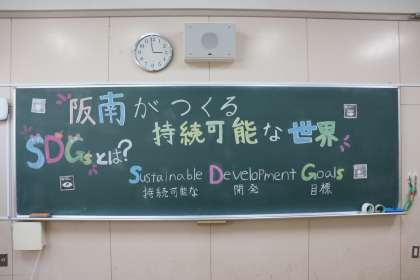 阪南がつくる
持続可能な世界
SDGsとは?
Sustainable Development Goals
持続可能な 開発 目標